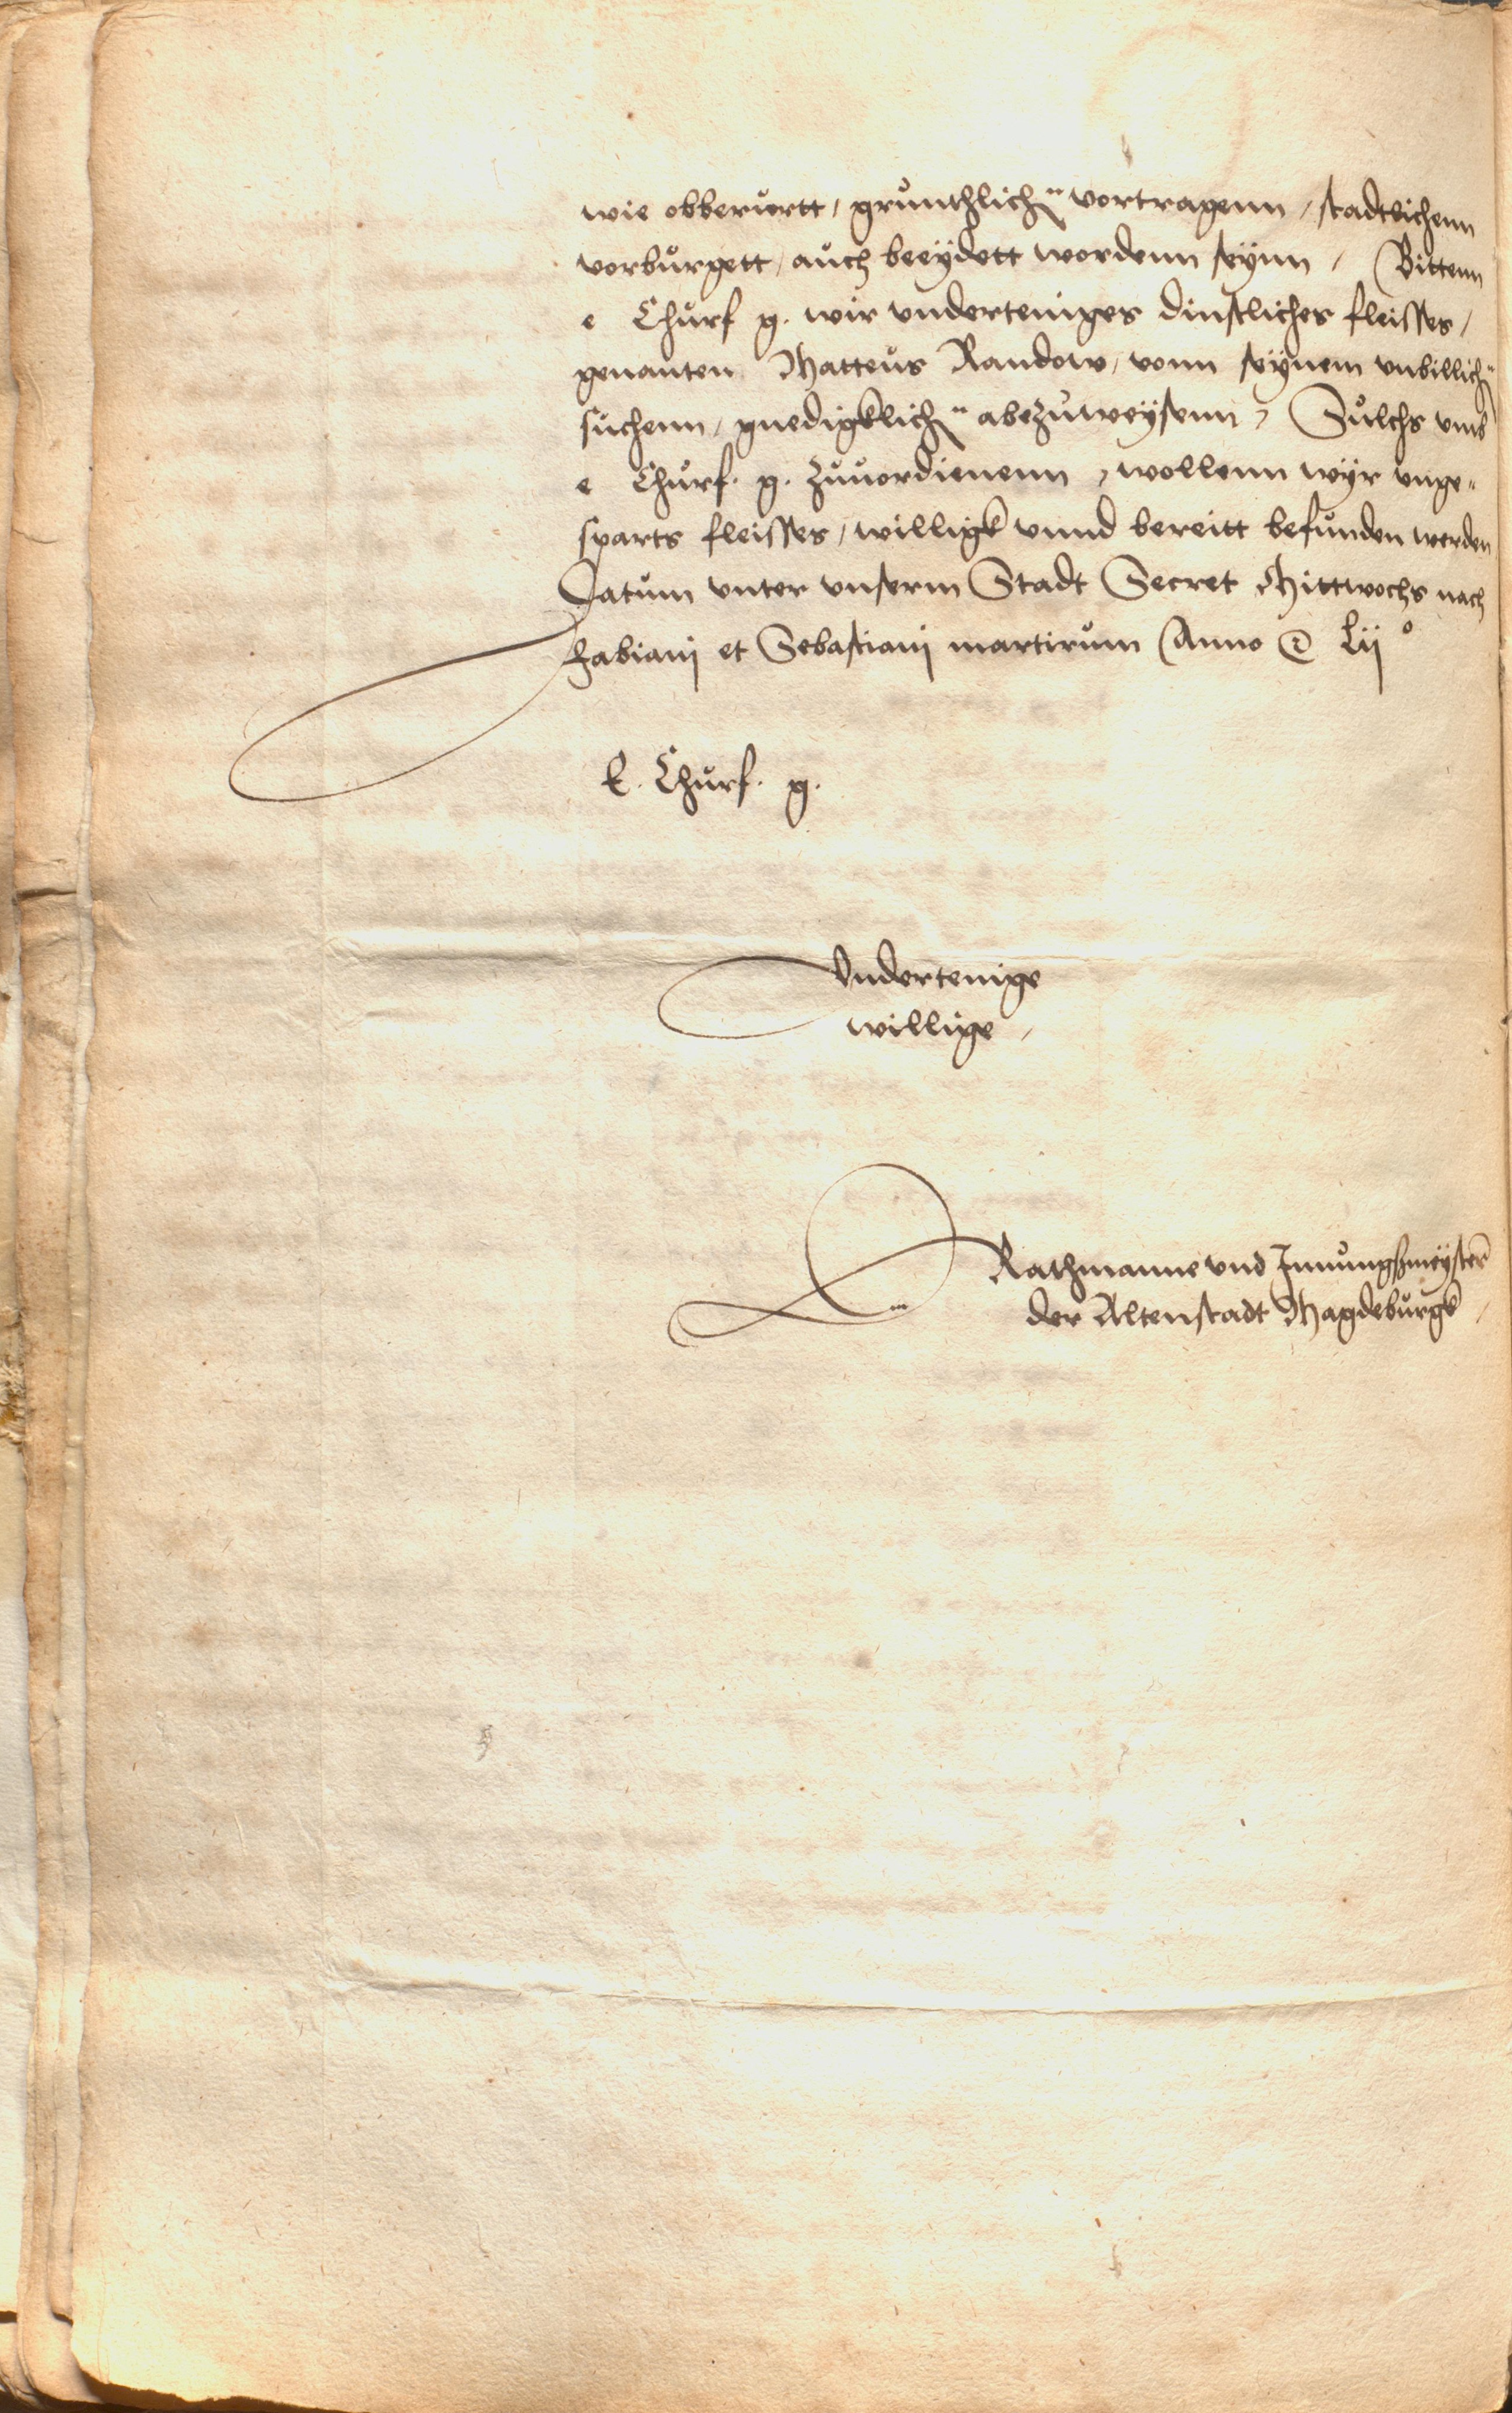 wie obberurtt, grunthlichn vortragenn, stadtlichenn
vorburgett, auch beeydett wordenn seynn, Bittenn
e Churf g. wir underteniges dinstliches fleisses,
genanten Matteus Randow, vonn seynem vnbillichn
suchenn, gnedigklichn abezuweysenn, Sulchs vmb
e Churf. g. zuuordienenn, wollenn wyr unge-
sparts fleisses, willigk vnnd bereitt befunden werden
Datum unter unserm Stadt Secret Mittwochs nach
Fabiani et Sebastiani martirum Anno &c Lii°
E. Churf. g.
Vndertenige
willige,
Rathmanne vnd Innungßmeyster
der Altenstadt Magdeburgk,